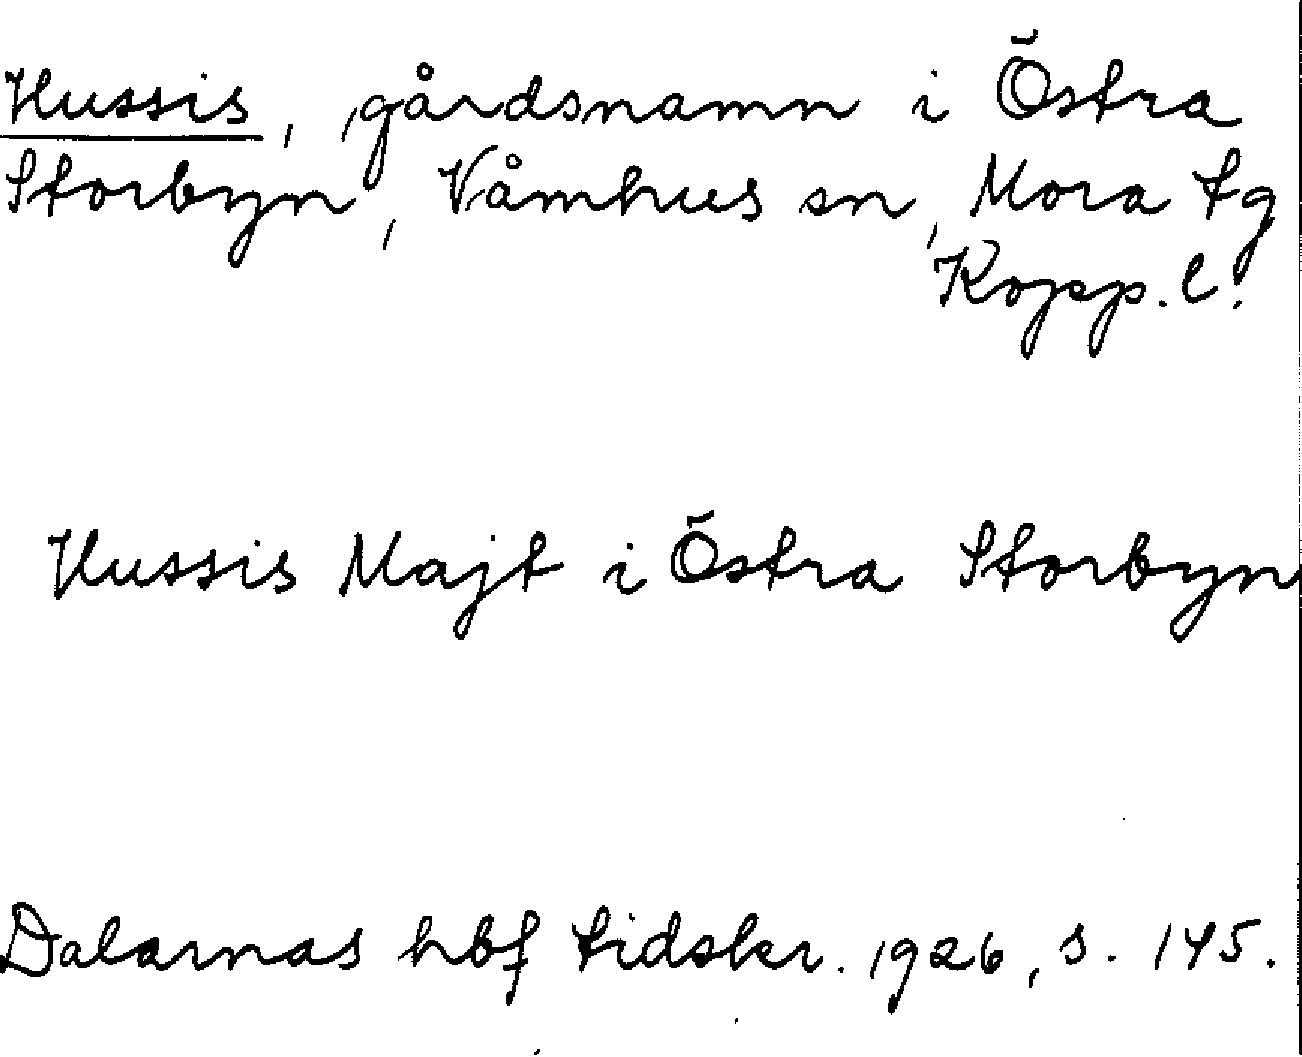 Hussis, gårdsnamn i Östra
Storbyn, Våmhus sn, Mora tg
Kopp. l.
Hussis Majt i Östra Storbyn
Dalarnas hbf tidskr. 1926, s. 145.